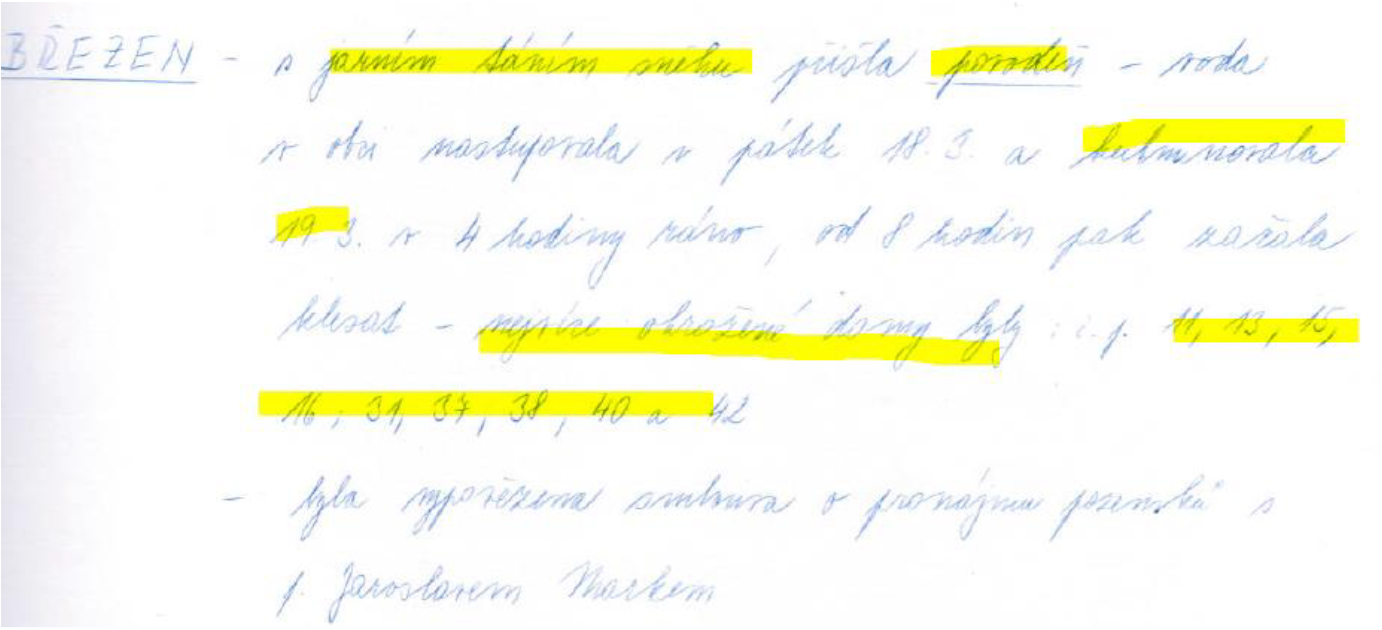 BŘEZEN - s jarním táním sněhu přišla povodeň - voda
v obci nastupovala v pátek 18.3. a kulminovala
19.3. v 4 hodiny ráno, od 8 hodin pak začala
klesat - nejvíce ohrožené domy byly : č.p. 11, 13, 15,
16, 31, 37, 38, 40 a 42
- byla vypovězena smlouva o pronájmu pozemků s
p. Jaroslavem Markem